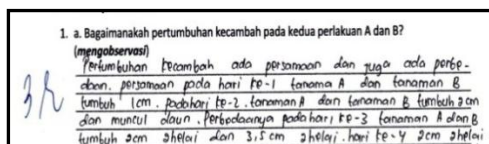 1. a. Bagaimanakah pertumbuhan kecambah pada kedua perlakuan A dan B?
(mengobservasi)
Pertumbuhan kecambah ada persamaan dan juga ada perbe-
daan. persamaan pada hari ke-1 tanama A dan tanaman B
tumbuh 1cm. Padahari ke-2. tanaman A dan tanaman B tumbuh 2cm
dan muncul daun. Perbedaanya pada hari ke-3 tanaman A dan B
tumbuh 2cm 2helai dan 3,5cm 2helai. hari ke-4 2cm 2helai